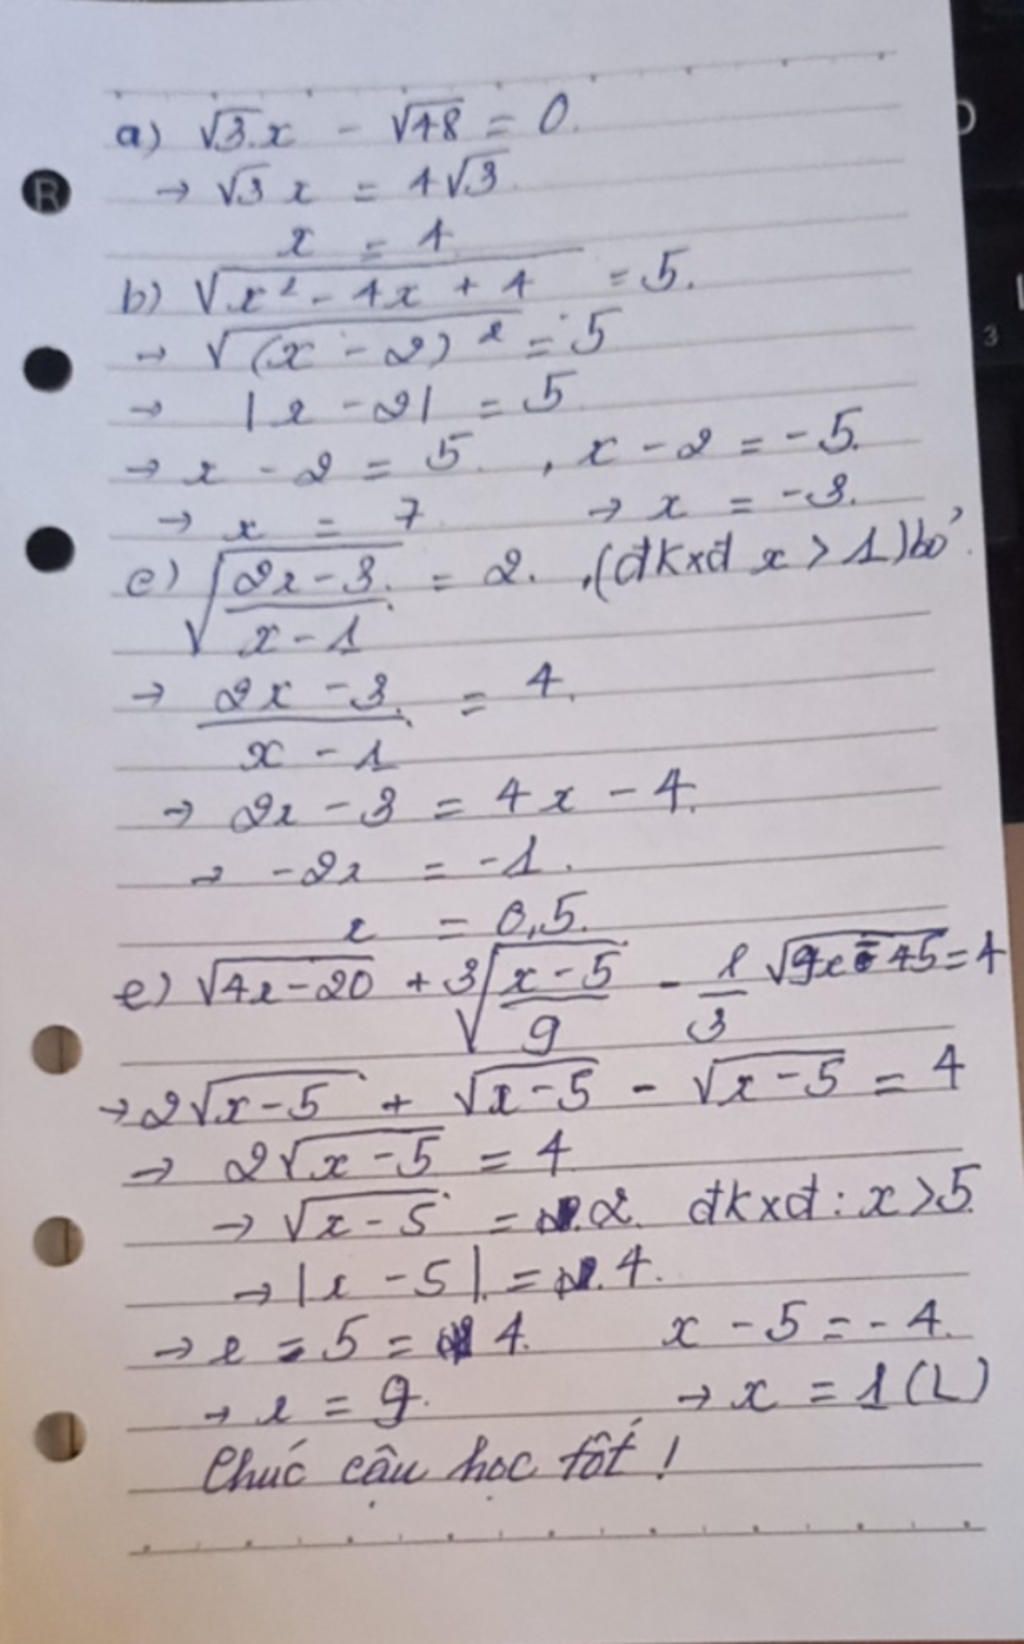 a) √3.x - √48 = 0.
→ √3 x = 4√3.
x = 4
b) √(x² - 4x + 4) = 5.
→ √((x - 2)²) = 5
→ |x - 2| = 5
→ x - 2 = 5. , x - 2 = -5.
→ x = 7 → x = -3.
c) √((2x-3)/(x-1)) = 2. ,(đkxđ x > 1) bỏ.
→ (2x - 3)/(x - 1) = 4.
→ 2x - 3 = 4x - 4.
→ -2x = -1.
x = 0,5.
e) √(4x-20) + 3√((x-5)/9) - 1/3 √(9x-45) = 4
→ 2√(x-5) + √(x-5) - √(x-5) = 4
→ 2√(x-5) = 4
→ √(x-5) = 2. đkxđ: x > 5.
→ |x - 5| = 4.
→ x - 5 = 4. x - 5 = -4.
→ x = 9. → x = 1 (L)
Chúc cậu học tốt !